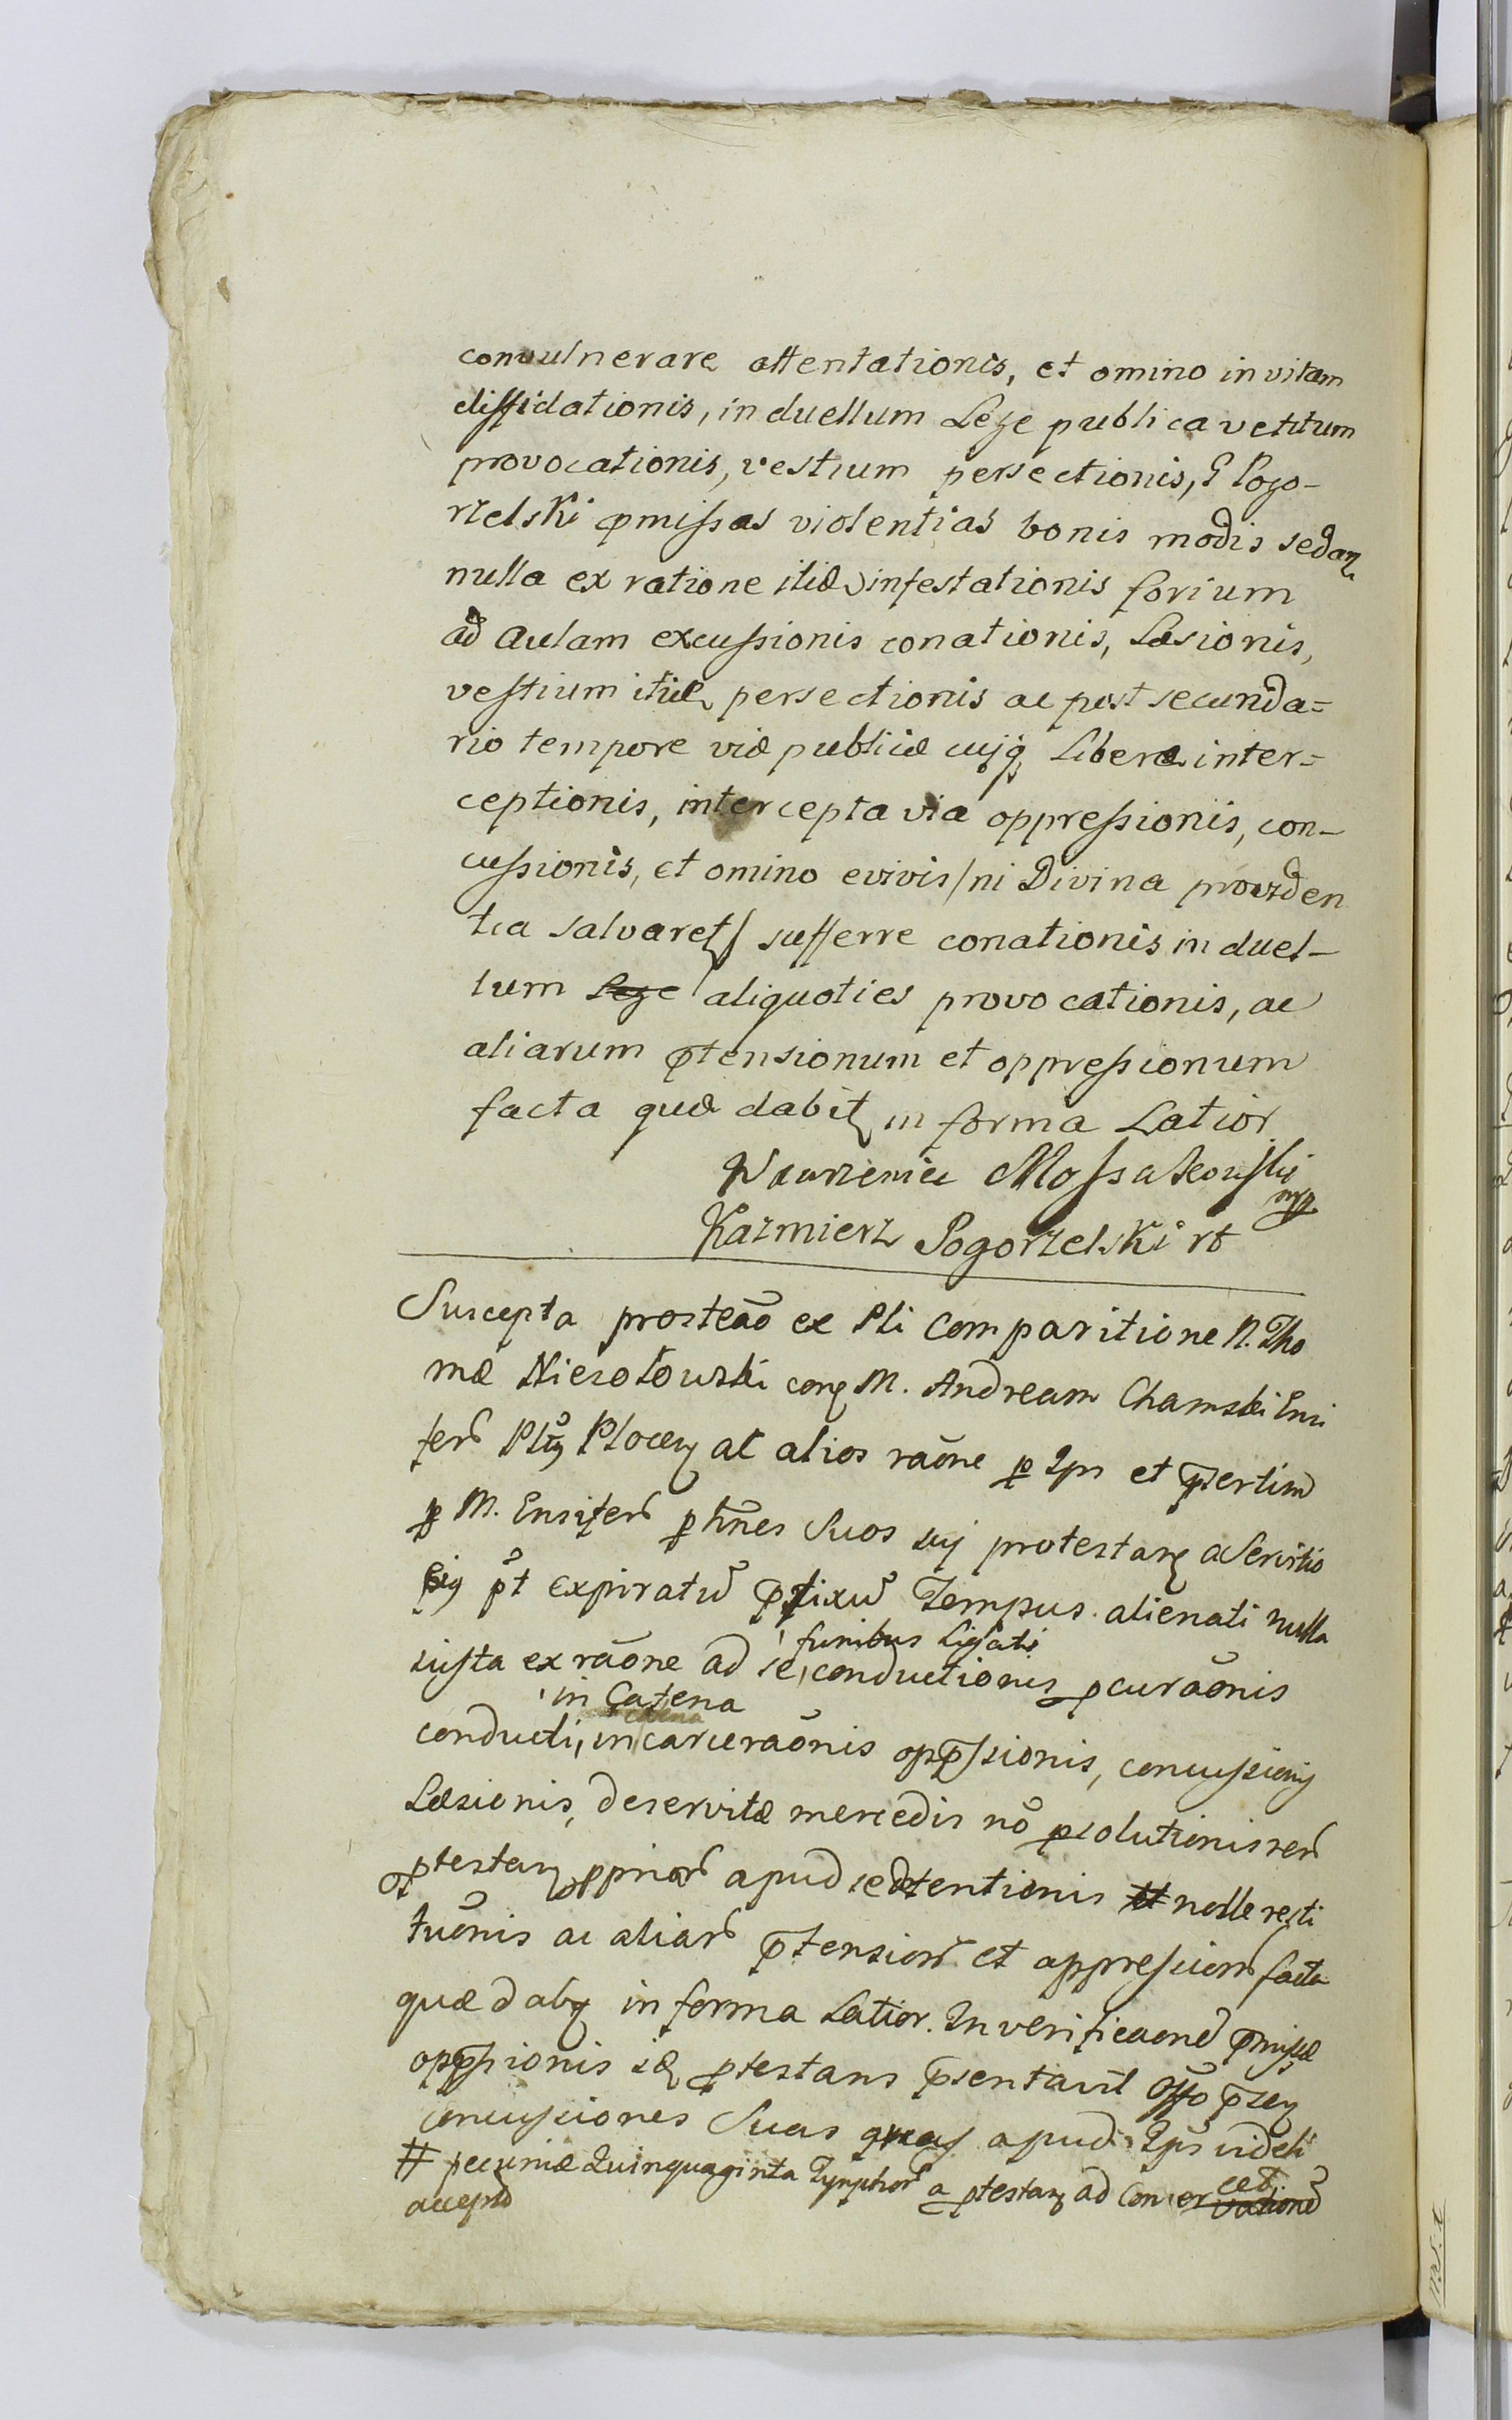 convulnerare attentationis, et omino in vitam
diffidationis, in duellum Lege publica vetitum
provocationis, vestium persectionis, G Pogo-
rzelski p̄missas violentias bonis modis sedan
nulla ex ratione itidē infestationis forium
ad Aulam excussionis conationis, Læsionis,
vestium itidē persectionis ac post secunda=
rio tempore viæ publicæ cujq Liberæ inter=
ceptionis, intercepta via oppressionis, con-
cussionis, et omino evivis/ni Divina providen
tia salvaret/ sufferre conationis in duel-
lum Lege aliquoties provocationis, ac
aliarum p̄tensionum et oppressionum
facta quæ dabit in forma Latior
Wawrzeniec Mossakowski
mp
Kazmierz Pogorzelski rt
Suscepta prosteāo ex Pli Comparitione N. Tho
mæ Niezotowski con M. Andream Chamski Ensi
fer Ploceñ ac alios raōne p Ips et p̄sertim
p M. Ensifer p hn̄es Suos suj protestan a Servitio
Ejg pt expiratu p̄fixu Tempus alienati nulla
funibus Ligati
justa ex raōne ad se, conductionis pcuraōnis
in Catena
conducti, incarceraōnis opp̄ssionis, concussionis
Læsionis, deservitæ mercedis nō psolutionis rer
ptestan ppriar apud se detentionis # nolle resti
tuōnis ac aliar p̄tension et oppression facta
quæ dabt in forma Latior. In verificaone p̄missæ
opp̄ssionis id ptestans p̄sentavit Offo p̄sen
concussiones Suas quas apud Ips videli
cet
# pecuniæ Quinquaginta Tynphor a ptestan ad Conservatione
accept